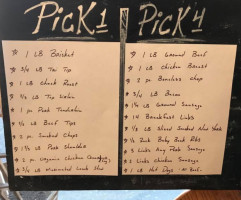 Pick 1
1 LB Brisket
3/4 LB Tri Tip
1 LB Chuck Roast
1 LB Top Sirloin
1 pc Pork Tenderloin
1/2 LB Beef Tips
2 pc Smoked Chops
1 1/2 LB Pork Shoulder
2 pc Organic Chicken
3/4 LB Marinated
Pick 4
1 LB Ground Beef
1 LB Chicken Breast
2 pc Boneless Chop
3/4 LB Bacon
1 LB Ground Sausage
14 Breakfast Links
1/2 LB Sliced Smoked New York
1/2 Rack Baby Back Ribs
3 Links Any Pork Sausage
3 Links Chicken Sausage
1 LB Hot Dogs